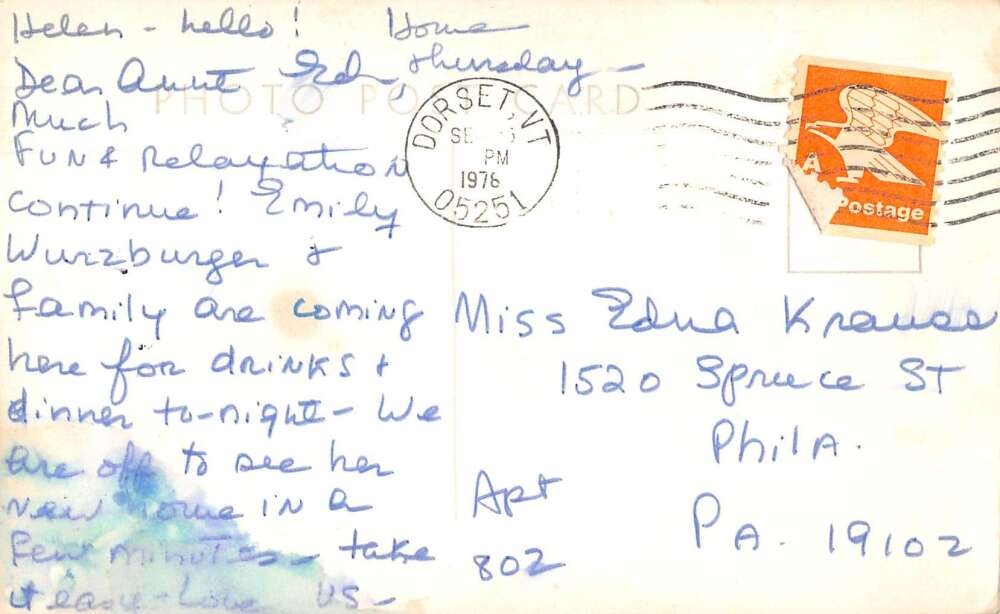 Helen - hello! Home
Thursday -
Dear Aunt Ed,
PHOTO POSTCARD
Much
Fun & Relaxation
continue! Emily
Wurzburger &
family are coming
here for drinks &
dinner to-night - We
are off to see her
new home in a
few minutes - take
it easy - Love US -
DORSET, VT
SE
PM
1978
05251
A
Postage
Miss Edna Krause
1520 Spruce ST
Phila.
PA. 19102
Apt
802